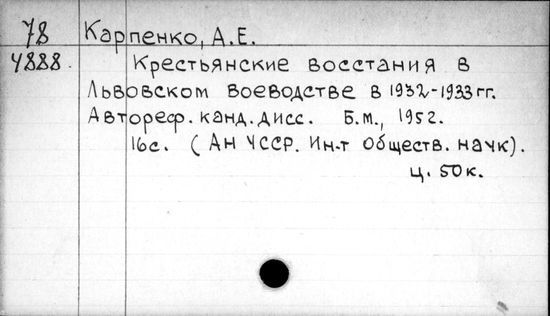 78 Карпенко, А.Е.
4888. Крестьянские восстания в
Львовском воеводстве в 1932-1933 гг.
Автореф. канд. дисс. Б.м., 1952.
16с. (Ан УССР. Ин-т Обществ. наук).
ц. 50к.